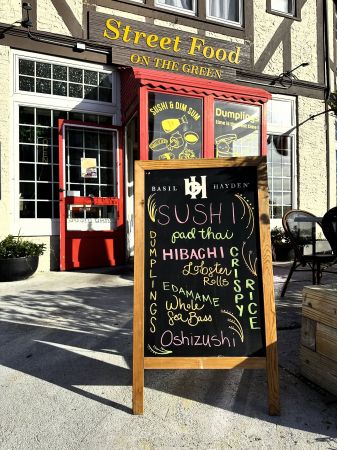 Street Food
ON THE GREEN
SUSHI & DIM SUM
Dumplings
BASIL HAYDEN
SUSHI
pad thai
HIBACHI
Lobster
Rolls
EDAMAME
Whole
Sea Bass
Oshizushi
DUMPLINGS
CRISPY
RICE